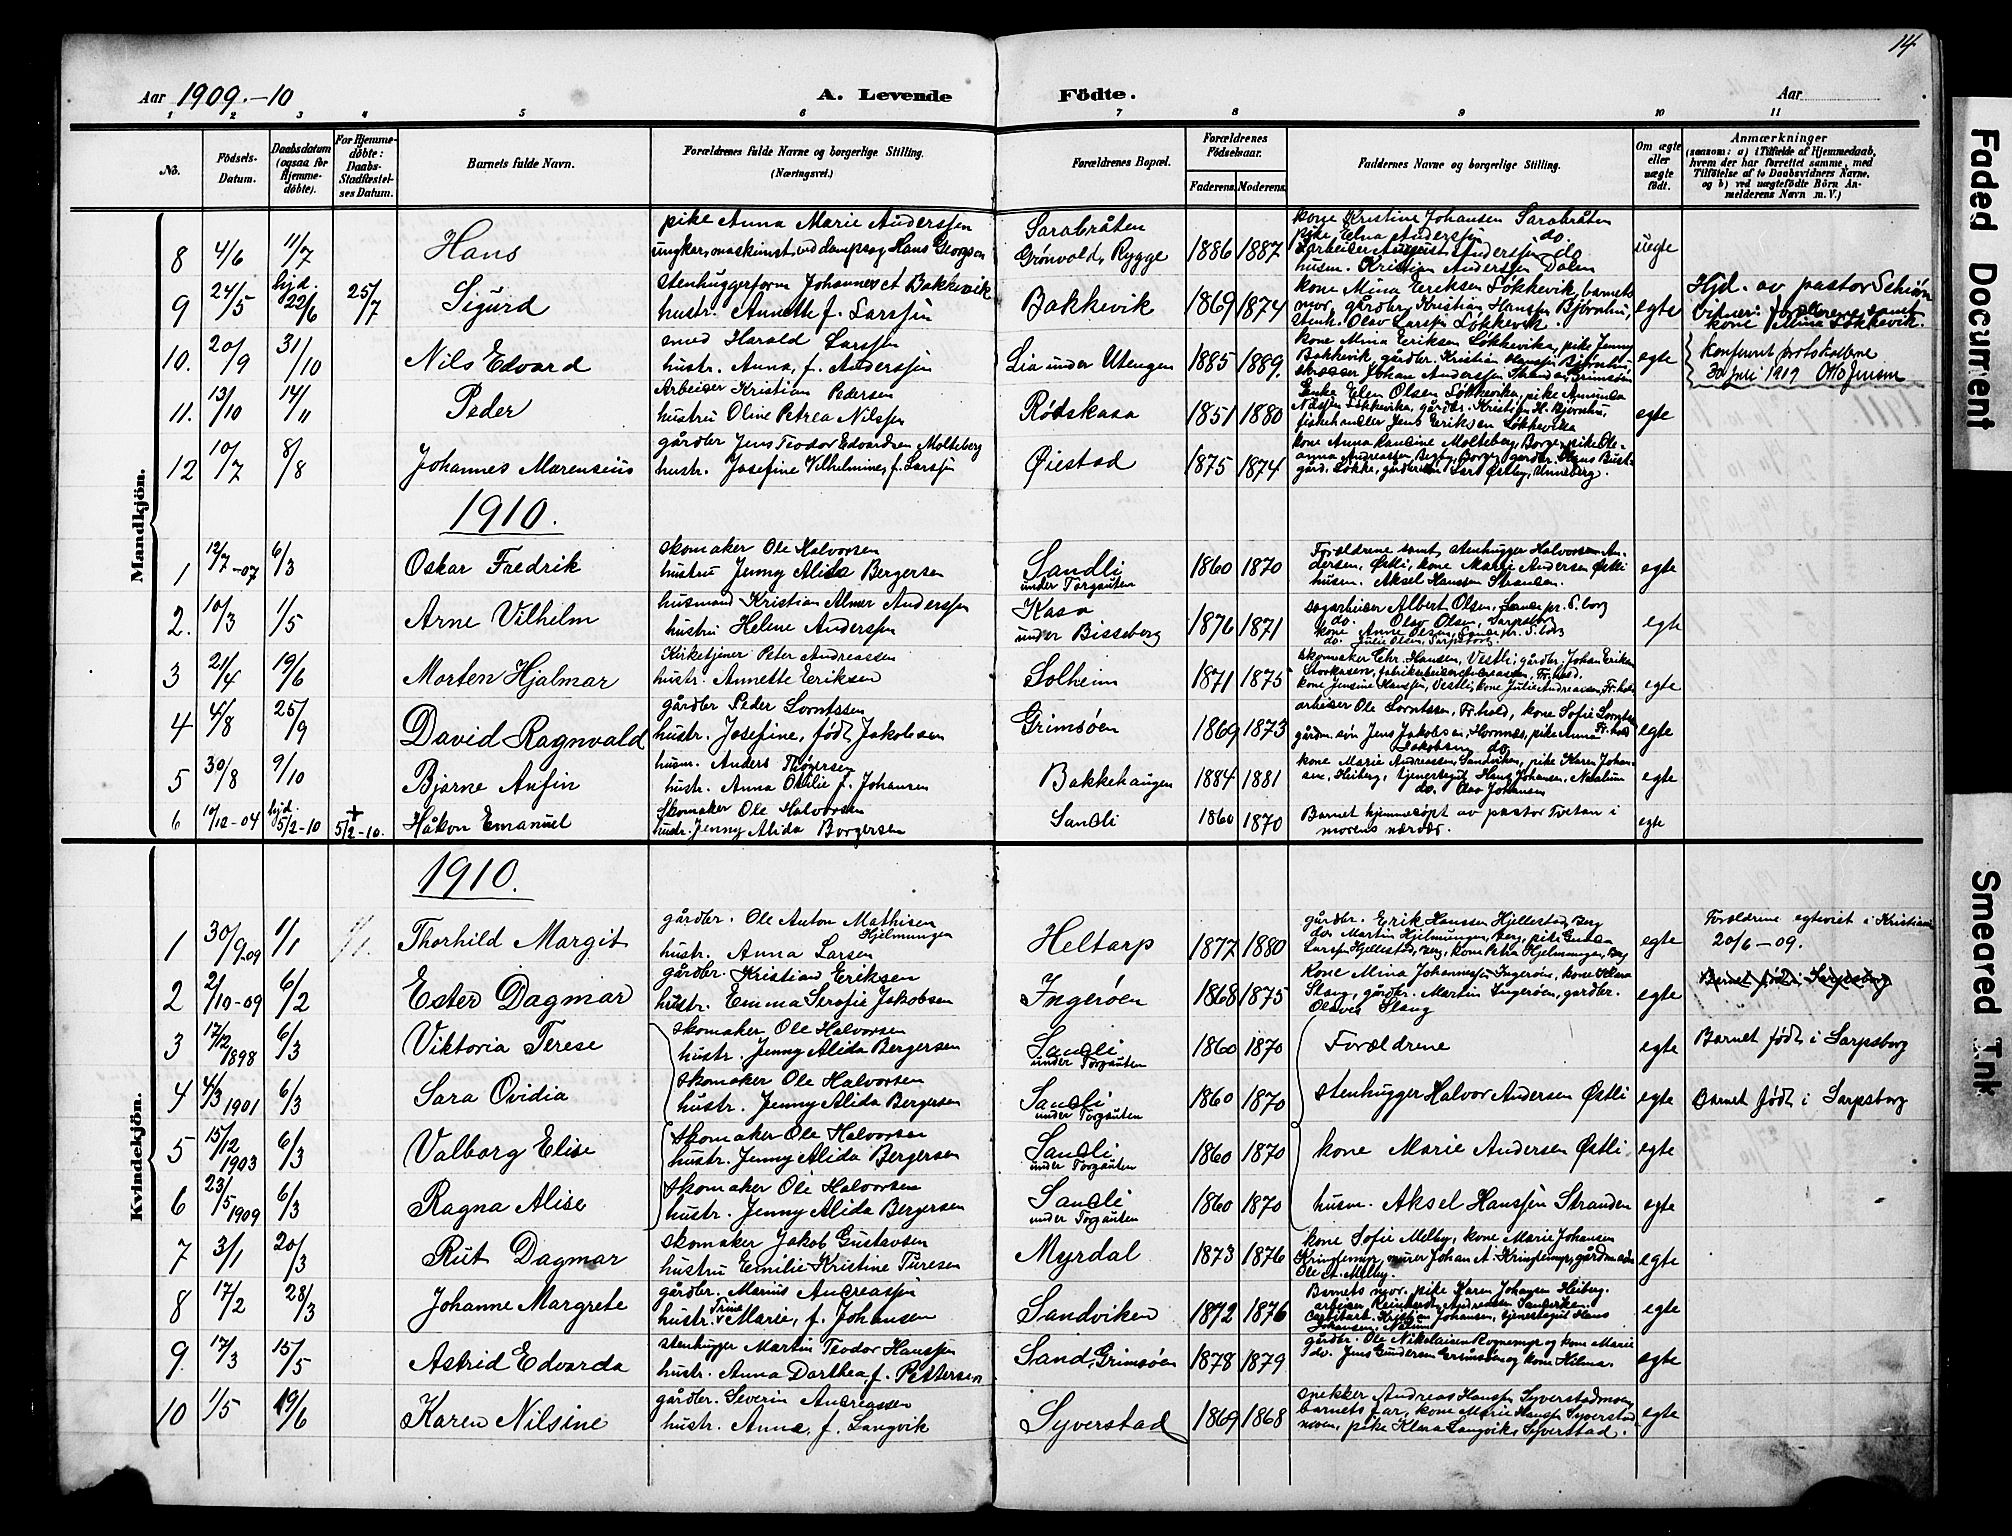 14
Aar 1909.-10
A. Levende Födte.
Aar
1 2 3 4 5 6 7 8 9 10 11
No.
Födsels-Datum.
Daabsdatum (ogsaa for Hjemmedöbte).
For Hjemmedöbte: Daabs-Stadfæstelses Datum.
Barnets fulde Navn.
Forældrenes fulde Navne og borgerlige Stilling. (Næringsvei.)
Forældrenes Bopæl.
Forældrenes Födselsaar.
Faderens. Moderens.
Faddernes Navne og borgerlige Stilling.
Om ægte eller uægte födt.
Anmærkninger
(saasom: a) i Tilfælde af Hjemmedaab,
hvem der har forrettet samme, med
Tilföielse af to Daabsvidners Navne,
og b) ved uægtefödte Börn Anmelderens Navn m. V.)
Mandkjön.
8 4/6 11/7 Hans
pike Anna Marie Anderssen
ungkar, maskinist ved dampsag Hans Georgsen
Sarabråten
Grønvold, Rygge
1886 1887
kone Kristine Johansen Sarabråten
pike Elna Anderssen do.
arbeider August Anderssen do
husm. Kristian Anderssen Dalen
uegte
9 24/5 hjd. 22/6 25/7 Sigurd
stenhuggerform Johannes et Bakkevik
hustr. Annette f. Larssen
Bakkevik
1869 1874
kone Mina Eriksen Løkkevik, barnets
mor, gårdbr. Kristian Hanssen Bjørnhu,
stenh. Olav Larssen Løkkevik.
egte
Hjd. av pastor Schiøn
vidner: forældrene samt
kone Mina Løkkevik.
10. 20/9 31/10 Nils Edvard
smed Harald Larssen
hustr. Anna, f. Anderssen
Lia under Utengen
1885 1889.
kone Mina Eriksen Løkkevika, pike Jenny
Bakkevik, gårdbr. Kristian Hanssen Bjørnhu,
skrædder Johan Anderssen Strand, Grimsøen
egte
Konferert protokollerne
30 juli 1919 Otto Jensen
11. 13/10 14/11 Peder
Arbeider Kristian Pedersen
hustru Oline Petrea Nilssen
Rødskasa
1851 1880
Enke Elen Olsen Løkkevika, pike Amunda
Nilssen Løkkevika, gårdbr. Kristian H. Bjørnhu,
fiskehandler Jens Eriksen Løkkevika
egte
12 10/7 8/8 Johannes Marensius
gårdbr Jens Teodor Edvardsen Molteberg
hustr. Josefine Vilhelmine, f. Larssen
Øiestad
1875 1874
kone Anna Pauline Molteberg, Borge, pike Oleanna Andreassen, Begby, Borge, gårdbr. Hans Bustgård, Løkke, gårdeier Lars Østby, Unneberg.
1910.
1 12/7-07 6/3 Oskar Fredrik
skomaker Ole Halvorsen
hustru Jenny Alida Bergersen
Sandli
under Torgauten
1860 1870
Forældrene samt stenhugger Halvorsen Andersen, Østli, kone Marie Andersen Østli
husm. Aksel Hanssen Stranden.
egte
2. 10/3 1/5 Arne Vilhelm
husmand Kristian Almer Anderssen
hustru Helene Anderssen
Kasa
under Bisseberg
1876 1871
sagarbeider Albert Olsen, Sande pr. S.borg
do. Olav Olsen, Sarpsborg
kone Anne Olsen, Sande pr. S.borg
do. Julie Olsen, Sarpsborg
egte
3 21/4 19/6 Morten Hjalmar
Kirketjener Peter Andreassen
hustr. Annette Eriksen
Solheim
1871 1875
skomaker Chr. Hansen, Vestli, gårdbr. Johan Eriksen
Storkasen, fabrikarbeider Andreassen, Fr.hald.
kone Jensine Hanssen, Vestli, kone Julie Andreassen, Fr.hald
egte
4 4/8 25/9 David Ragnvald
gårdbr Peder Lorntssen
hustr. Josefine, født Jakobsen
Grimsøen
1869 1873
arbeider Ole Lorntssen, Fr.hald, kone Sofie Lorntssen Fr.hald
gårdm. søn Jens Jakobsen, Hornnæs, pike Anna
Jakobsen do
egte
5 30/8 9/10 Bjarne Anfin
husm. Anders Thøgersen
hustr. Anna Otilie f. Johansen
Bakkehaugen
1884 1881
kone Marie Andreassen, Sandviken, pike Karen Johansen, Heiberg, tjenestegut Hans Johansen, Nalum
do. Olav Johansen
egte
6 10/12-04 hjd. 5/2-10 + 5/2-10. Håkon Emanuel
Skomaker Ole Halvorsen
hustr. Jenny Alida Borgersen
Sandli
1860 1870
Barnet hjemmedøpt av pastor Tvetan i
morens nærvær.
egte
Kvindekjön.
1910.
1 30/9-09 1/1 1/1. Thorhild Margit
gårdbr. Ole Anton Mathisen
Hjelmungen
hustr. Anna Larsen
Heltorp
1877 1880
gårdbr. Erik Hanssen Hjellestad, Berg
do. Martin Hjelmungen, Berg, pike Gunda
Larssen Hjellestad, Berg, kone Petra Hjelmungen, Berg
egte
Forældrene egteviet i Kristiania
20/6-09.
2 2/10-09 6/2 Ester Dagmar
gårdbr. Kristian Eriksen
hustr. Emma Serafie Jakobsen
Ingerøen
1868 1875
Kone Mina Johannessen Ingerøen, kone Klara
Slang, gårdbr. Martin Ingerøen, gårdbr.
Olaves Slang
egte
Barnet født i Sarpsborg
3 17/12 1898 6/3 Viktoria Terese
skomaker Ole Halvorsen
hustr. Jenny Alida Bergersen
Sandli
under Torgauten
1860 1870
Forældrene
egte
Barnet født i Sarpsborg
4 4/3 1901 6/3 Sara Ovidia
skomaker Ole Halvorsen
hustr. Jenny Alida Bergersen
Sandli
under Torgauten
1860 1870
stenhugger Halvor Andersen Østli
egte
Barnet født i Sarpsborg
5 15/12 1903 6/3 Valborg Elise
skomaker Ole Halvorsen
hustr. Jenny Alida Bergersen
Sandli
under Torgauten
1860 1870
kone Marie Andersen Østli
egte
6 23/5 1909 6/3 Ragna Alise
skomaker Ole Halvorsen
hustr. Jenny Alida Bergersen
Sandli
under Torgauten
1860 1870
husm. Aksel Hanssen Stranden
egte
7 3/1 20/3 Rut Dagmar
skomaker Jakob Gustavsen
hustru Emilie Kristine Turesen
Myrdal
1873 1876
kone Sofie Melby, kone Marie Johansen
Kringlemyr, murer Johan A. Kringlemyr, gårdmand
Ole A. Melby.
egte
8 17/2 28/3 Johanne Margrete
gårdbr. Marius Andreassen
hustr. Trine Marie, f. Johansen
Sandviken
1872 1876
Barnets mor, pike Karen Johansen Heiberg.
arbeider Reinhardt Andreassen Sandviken.
Kristian Johansen, tjenestegut Hans
Johansen, Nalum
egte
9. 17/3 15/5 Astrid Edvarda
stenhugger Martin Teodor Hanssen
hustr. Anna Darthea, f. Pettersen
Sand, Grimsøen
1878 1879
gårdbr. Ole Nikolaisen Rognemyr og kone Marie
Jens Gundersen Grimsøen og kone Hilma.
egte
10 1/5 19/6 Karen Nilsine
gårdbr. Severin Andreassen
hustr. Anna, f. Langvik
Syverstad
1869 1868
snekker Andreas Hanssen Syverstadmoen
barnets far, kone Marie Hanssen Syverstadmoen, pike Klara Langvik, Syverstad.
egte
Faded Document
Smeared Ink